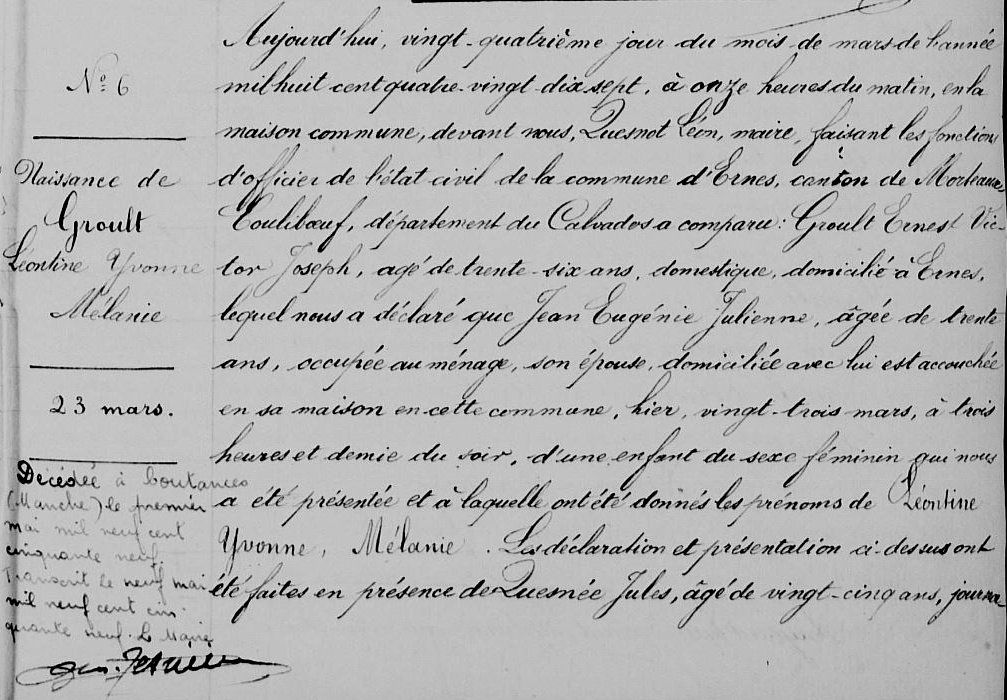 N° 6
Naissance de
Groult
Léontine Yvonne
Mélanie
23 mars.
Décédée à Coutances
(Manche) le premier
mai mil neuf cent
cinquante neuf
Transcrit le neuf mai
mil neuf cent cin-
quante neuf. Le Maire
Aujourd'hui, vingt-quatrième jour du mois de mars de l'année
mil huit cent quatre-vingt-dix sept, à onze heures du matin, en la
maison commune, devant nous, Quesnot Léon, maire, faisant les fonctions
d'officier de l'état civil de la commune d'Ernes, canton de Morteaux-
Coulibœuf, département du Calvados a comparu: Groult Ernest Vic-
tor Joseph, agé de trente-six ans, domestique, domicilié à Ernes,
lequel nous a déclaré que Jean Eugénie Julienne, âgée de trente
ans, occupée au ménage, son épouse, domiciliée avec lui est accouchée
en sa maison en cette commune, hier, vingt-trois mars, à trois
heures et demie du soir, d'une enfant du sexe féminin qui nous
a été présentée et à laquelle ont été donnés les prénoms de Léontine
Yvonne, Mélanie. Les déclaration et présentation ci-dessus ont
été faites en présence de Quesnée Jules, âgé de vingt-cinq ans, journa-